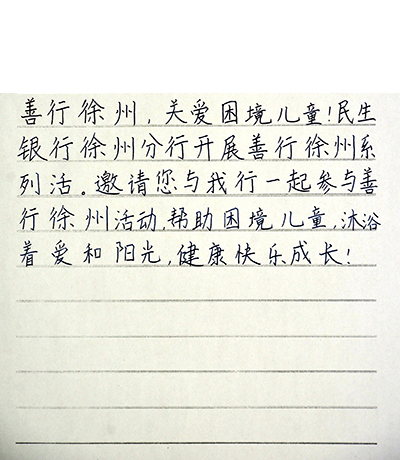 善行徐州，关爱困境儿童！民生
银行徐州分行开展善行徐州系
列活。邀请您与我行一起参与善
行徐州活动，帮助困境儿童，沐浴
着爱和阳光，健康快乐成长！